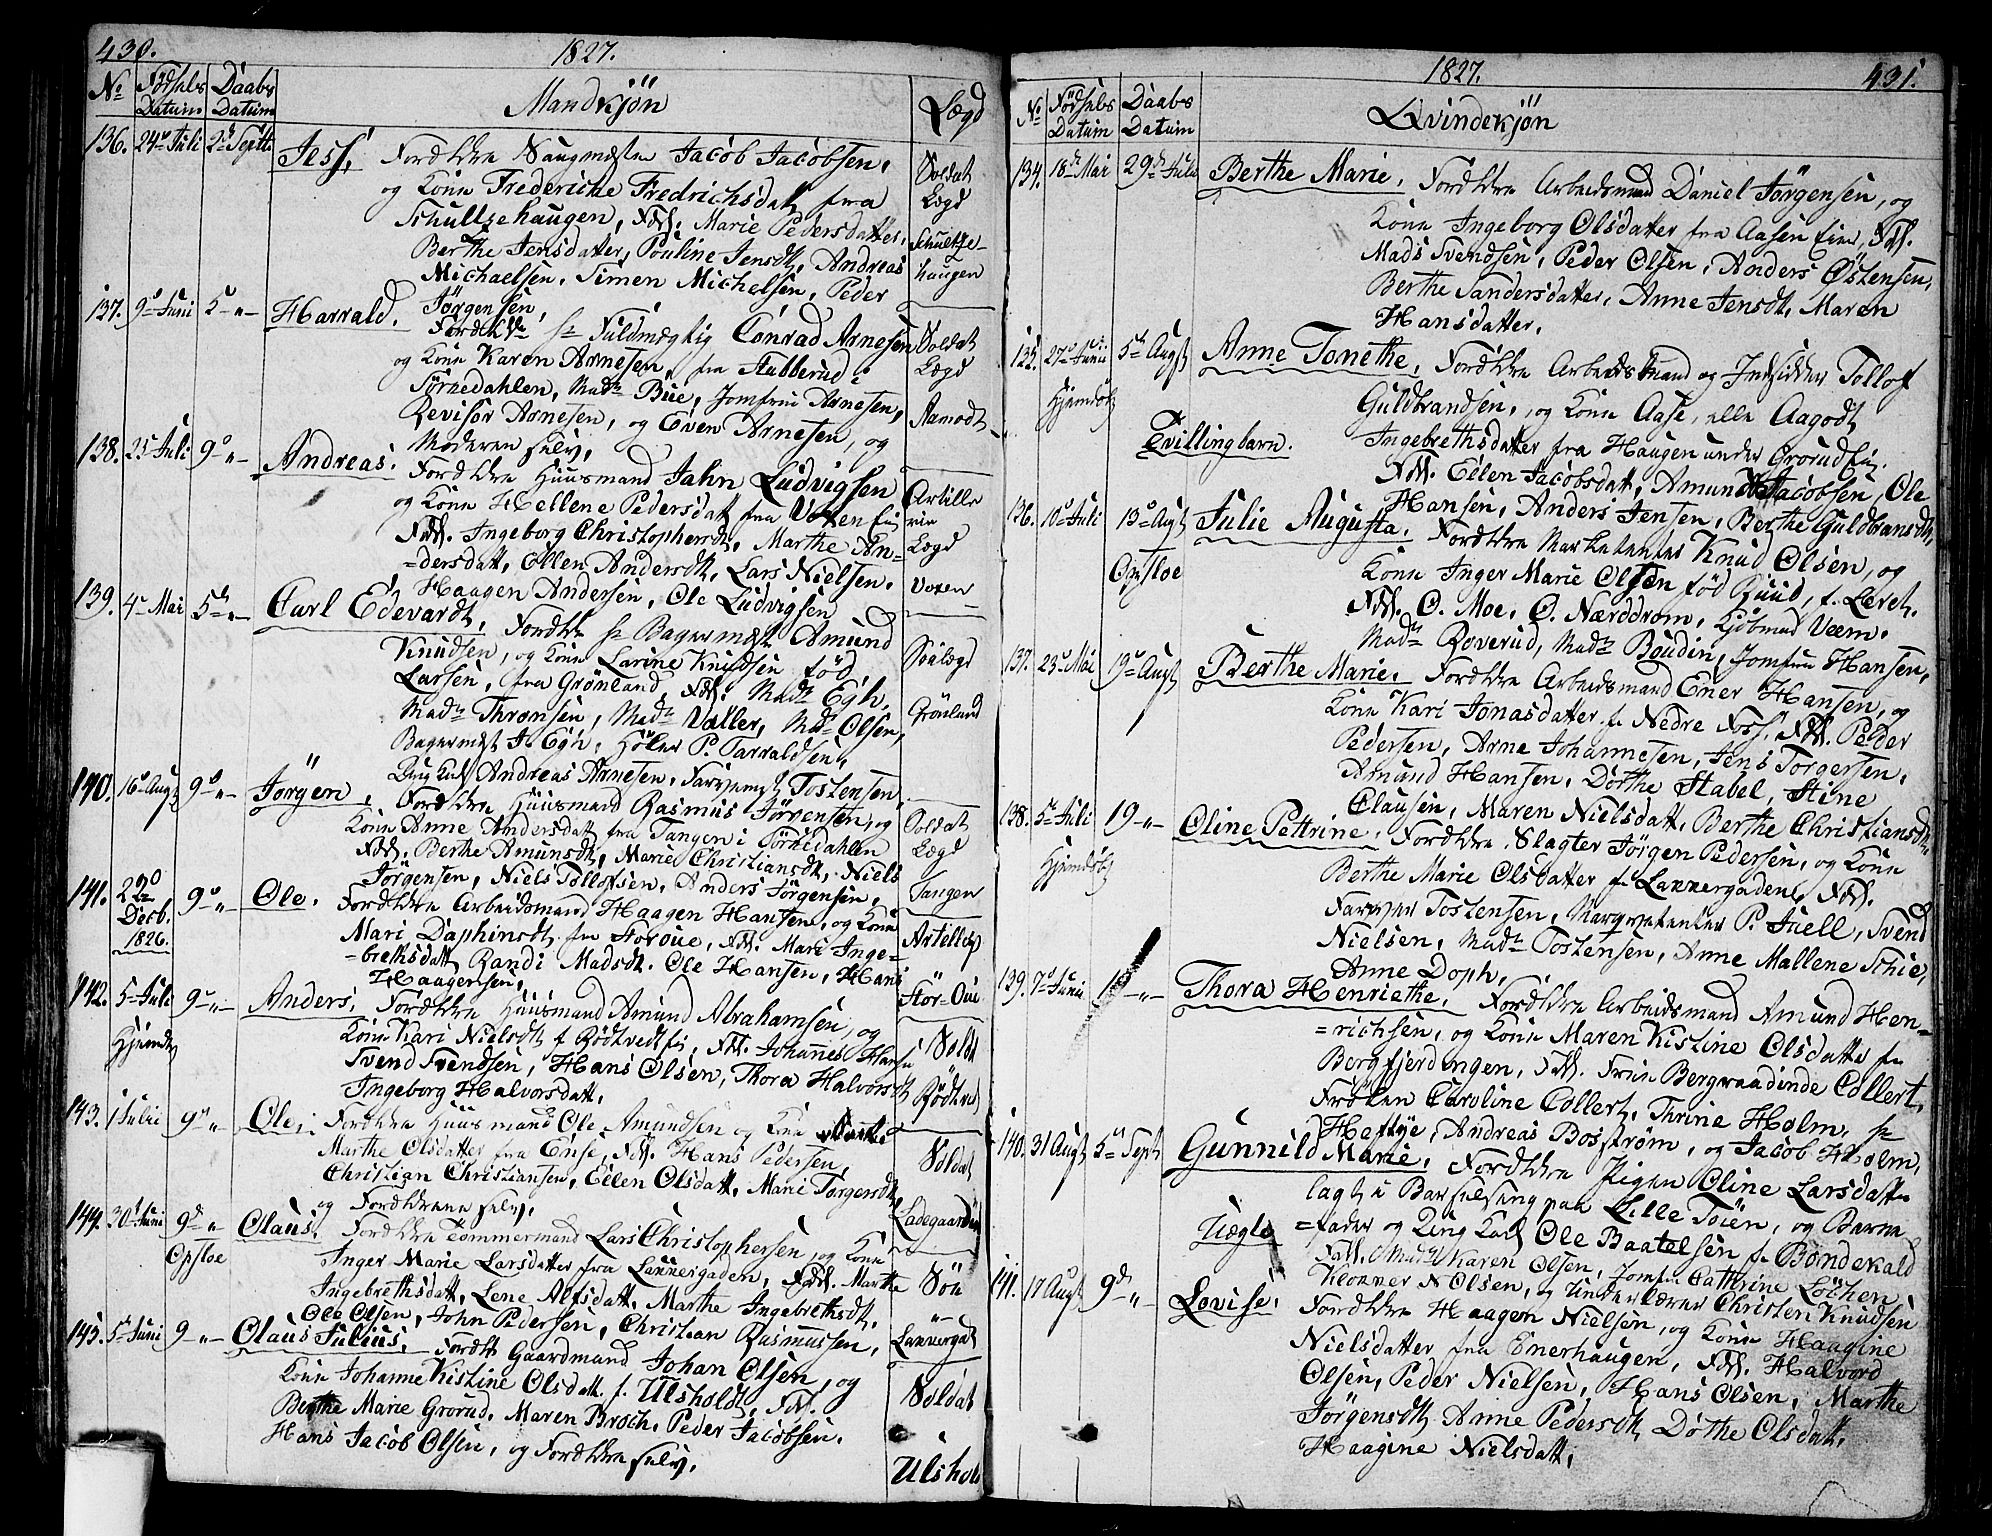 430.
1827.
No Fødsels Datum Daabs Datum Mandkjön Lægd
136. 24de Juli 2de Septb. Jess, Forældre Saugmester Jacob Jacobsen,
og Kone Frederiche Fredrichsdatt fra
Schultzehaugen, Fdd. Marie Pedersdatter,
Berthe Jensdatter, Pouline Jensdt, Andreas
Michaelsen, Simen Michelsen, Peder
Jörgensen,
Soldat
Lægd
Schultze-
haugen
137. 9de Juni 5te " Harrald. Forældre Hr Fuldmægtig Conrad Arnesen
og Kone Karen Arnesen, fra Stubberud i
Sörkedahlen, Madm Bue, Jomfru Arnesen,
Revisor Arnesen, og Even Arnesen, og
Moderen selv,
Soldat
Lægd
Aamodt
138. 25 Juli 9de " Andreas. Forældre Huusmand Jahn Ludvigsen
og Kone Hellene Pedersdatt fra Voxen Eie
Fdd. Ingeborg Christophersdt, Marthe An=
=dersdatt, Ellen Andersdt, Lars Nielsen,
Haagen Andersen, Ole Ludvigsen
Artille
rie
Lægd
Voxen
139. 4de Mai 5te " Carl Edevardt, Forældre Hr Bagermester Amund
Knudsen, og Kone Larine Knudsen föd
Larsen, fra Grönland, Fdd. Madm Egh,
Madm Thronsen, Madm Valler, Md. Olsen,
Bagermest J. Egh, Höker P. Tarraldsen,
Ung Karl Andreas Arnesen, Farvemest Tostensen,
Söelægd
Grönland
140. 16de Augt 9de " Jörgen, Forældre Huusmand Rasmus Jörgensen, og
Kone Anne Andersdatt fra Tangen i Sörkedahlen
Fdd. Berthe Amunsdt, Marie Christiansdt, Niels
Jörgensen, Niels Tollofsen, Anders Jörgensen,
Soldat
Lægd
Tangen
141. 22de Decb. 1826. 9de " Ole. Forældre Arbeidsmand Haagen Hansen, og Kone
Mari Daphinsdt fra Storöue, Fdd. Mari Inge=
=brethsdatt, Randi Madsdt. Ole Hansen, Hans
Haagensen,
Artellen
Stor-Öue
142. 5te Juli 9de " Anders, Forældre Huusmand Amund Abrahamsen, og
Hjemdöbt
Kone Kari Nielsdt f Rödtvedt Ei, Fdd. Johannes Hansen
Svend Svendsen, Hans Olsen, Thora Halvorsdt
Ingeborg Halvorsdatt,
Soldt
Rödtvedt
143. 1 Julii 9de " Ole, Forældre Huusmand Ole Amundsen og Kone
Marthe Olsdatter fra Ense, Fdd. Hans Pedersen,
Christian Christiansen, Ellen Olsdatt, Mari Torgersdt,
og Forældrene selv,
Soldat
Ladegaardöen
144. 30de Juni 9de " Claus. Forældre Tömmermand Lars Christophersen, og Kone
Opsloe
Inger Marie Larsdatter fra Lakkergaden, Fdd. Marthe
Ingebrethsdatt, Lene Alfsdatt, Marthe Ingebrethsdt,
Ole Olsen, John Pedersen, Christian Rasmussen,
Söe
"
Lakkergad
145. 5te Juni 9 " Claus Julius. Forældre Gaardmand Johan Olsen, og
Kone Johanne Kistine Olsdatt f. Ulsholdt, Fdd.
Berthe Marie Grorud, Maren Broch, Peder Jacobsen,
Hans Jacob Olsen, og Forældre selv,
Soldat
i
Ulshol
1827.
431.
No Fødsels Datum Daabs Datum Qvindekjön
134. 18de Mai 29de Julii Berthe Marie, Forældre Arbeidsmand Daniel Jörgensen, og
Kone Ingeborg Olsdatter fra Aasen Eie, Fdd.
Mads Svendsen, Peder Olsen, Anders Östensen,
Berthe Sandersdatter, Anne Jensdt, Maren
Hansdatter,
135. 27de Junii 5te Augt Anne Tonethe, Forældre Arbeidsmand og Inderster Tollof
Hjemdöbt
Guldbrandsen, og Kone Aase, eller Aagodt
Tvillingbarn.
Ingebrethsdatter fra Haugen under Grorud Eie.
Fdd. Ellen Jacobsdatt, Amund Jacobsen, Ole
Hansen, Anders Jensen, Berthe Guldbransdt,
136. 10de Juli 13de Augt Julie Augusta, Forældre Marketenter Knud Olsen, og
Opsloe
Kone Inger Marie Olsen föd Ruud, f. Leret.
Fdd. O. Moe, O. Nærddrom, Kjöbmad Veem,
Madm Roverud, Madm Boudin, Jomfru Hansen,
137. 23de Mai 19de Augt Berthe Marie, Forældre Arbeidsmand Ener Hansen, og
Kone Kari Jonasdatter f. Nedre Foss, Fdd. Peder
Pedersen, Arne Johannesen, Jens Torgersen,
Amund Hansen, Dorthe Stabel, Stine
Clausen, Maren Nielsdatt, Berthe Christiansdt,
138. 5te Juli 19 " Oline Pettrine, Forældre Slagter Jörgen Pedersen, og Kone
Hjemdöbt
Berthe Marie Olsdatter f. Lakkergaden, Fdd.
Farver Tostensen, Margvetenter P. Juell, Svend
Nielsen, Madm Tostensen, Anne Mallene Schie,
Anne Doph,
139. 7de Junii 19 " Thora Henriethe, Forældre Arbeidsmand Amund Hen=
=richsen, og Kone Maren Kistine Olsdatter fra
Bergfjerdingen, Fdd. Frue Bergraadinde Collert,
Fröken Caroline Collert, Thrine Holm, Hr
Heftye, Andreas Boström, og Jacob Holm,
140. 31 Augt 5te Sept Gunnild Marie, Forældre Pigen Oline Larsdatter
lagt i Barselseng paa Lille Töien, og Barne
Uægte
=fader og Ung Karl Ole Baatelsen f. Bondekald
Fdd. Madm Karen Olsen, Jomfru Cathrine Löchen,
Klokker N Olsen, og Underlærer Christen Knudsen
141. 17 Augt 9de " Lovise, Forældre Haagen Nielsen, og Kone Haagine
Nielsdatter fra Enerhaugen, Fdd. Halvord
Olsen, Peder Nielsen, Hans Olsen, Marthe
Jörgensdt, Anne Pedersdt, Dorthe Olsdatt,
Haagine Nielsdatt,